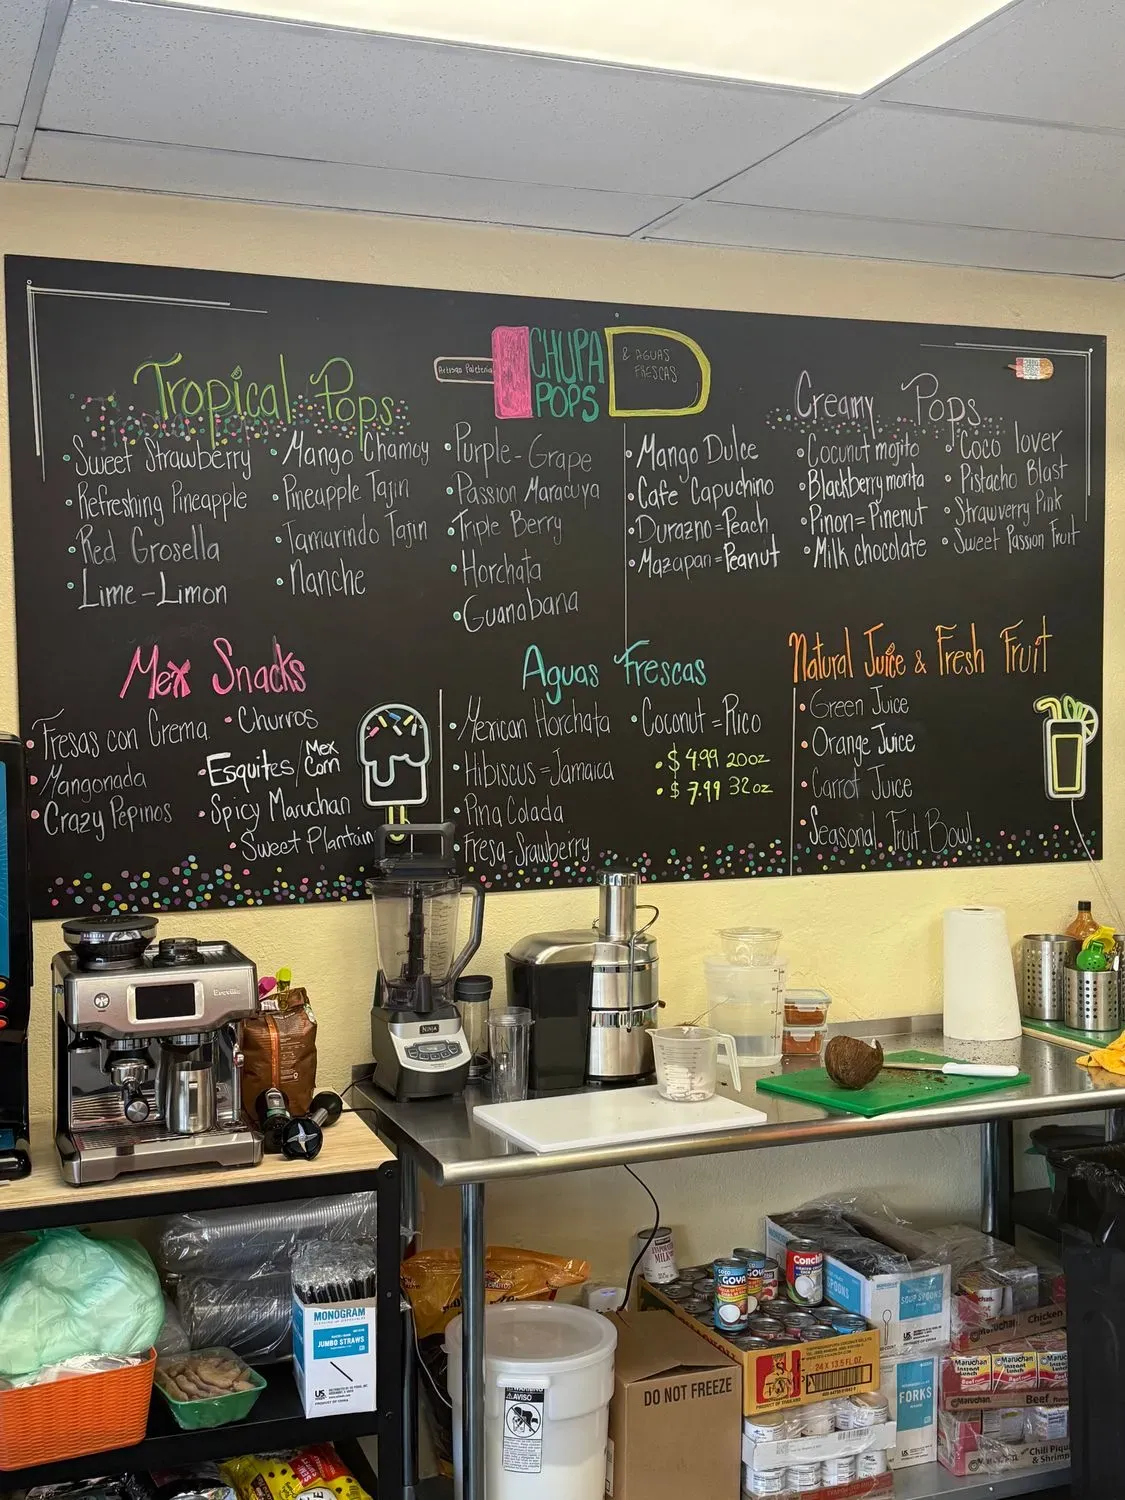 Artisan Paleteria
CHUPA
POPS
& AGUAS
FRESCAS
Tropical Pops
Sweet Strawberry
Refreshing Pineapple
Red Grosella
Lime-Limon
Mango Chamoy
Pineapple Tajin
Tamarindo Tajin
Nanche
Purple-Grape
Passion Maracuya
Triple Berry
Horchata
Guanabana
Creamy Pops
Mango Dulce
Cafe Capuchino
Durazno=Peach
Mazapan=Peanut
Coconut mojito
Blackberry morita
Pinon=Pinenut
Milk chocolate
Coco lover
Pistacho Blast
Strawverry Pink
Sweet Passion Fruit
Mex Snacks
Fresas con Crema
Mangonada
Crazy Pepinos
Churros
Esquites/Mex Corn
Spicy Maruchan
Sweet Plantain
Aguas Frescas
Mexican Horchata
Hibiscus=Jamaica
Pina Colada
Fresa-Srawberry
Coconut=Rico
$4.99 20oz
$7.99 32oz
Natural Juice & Fresh Fruit
Green Juice
Orange Juice
Carrot Juice
Seasonal Fruit Bowl
Breville
NINJA
MONOGRAM
JUMBO STRAWS
AVISO
DO NOT FREEZE
MILK
GOYA
GOYA
24 X 13.5 FL OZ.
PRODUCT OF THAILAND
SPOONS
SOUP SPOONS
FORKS
Maruchan
Chicken
Maruchan
Instant
Lunch
Maruchan
Instant
Lunch
Maruchan
Beef
Maruchan
Chili Piqu
& Shrimp